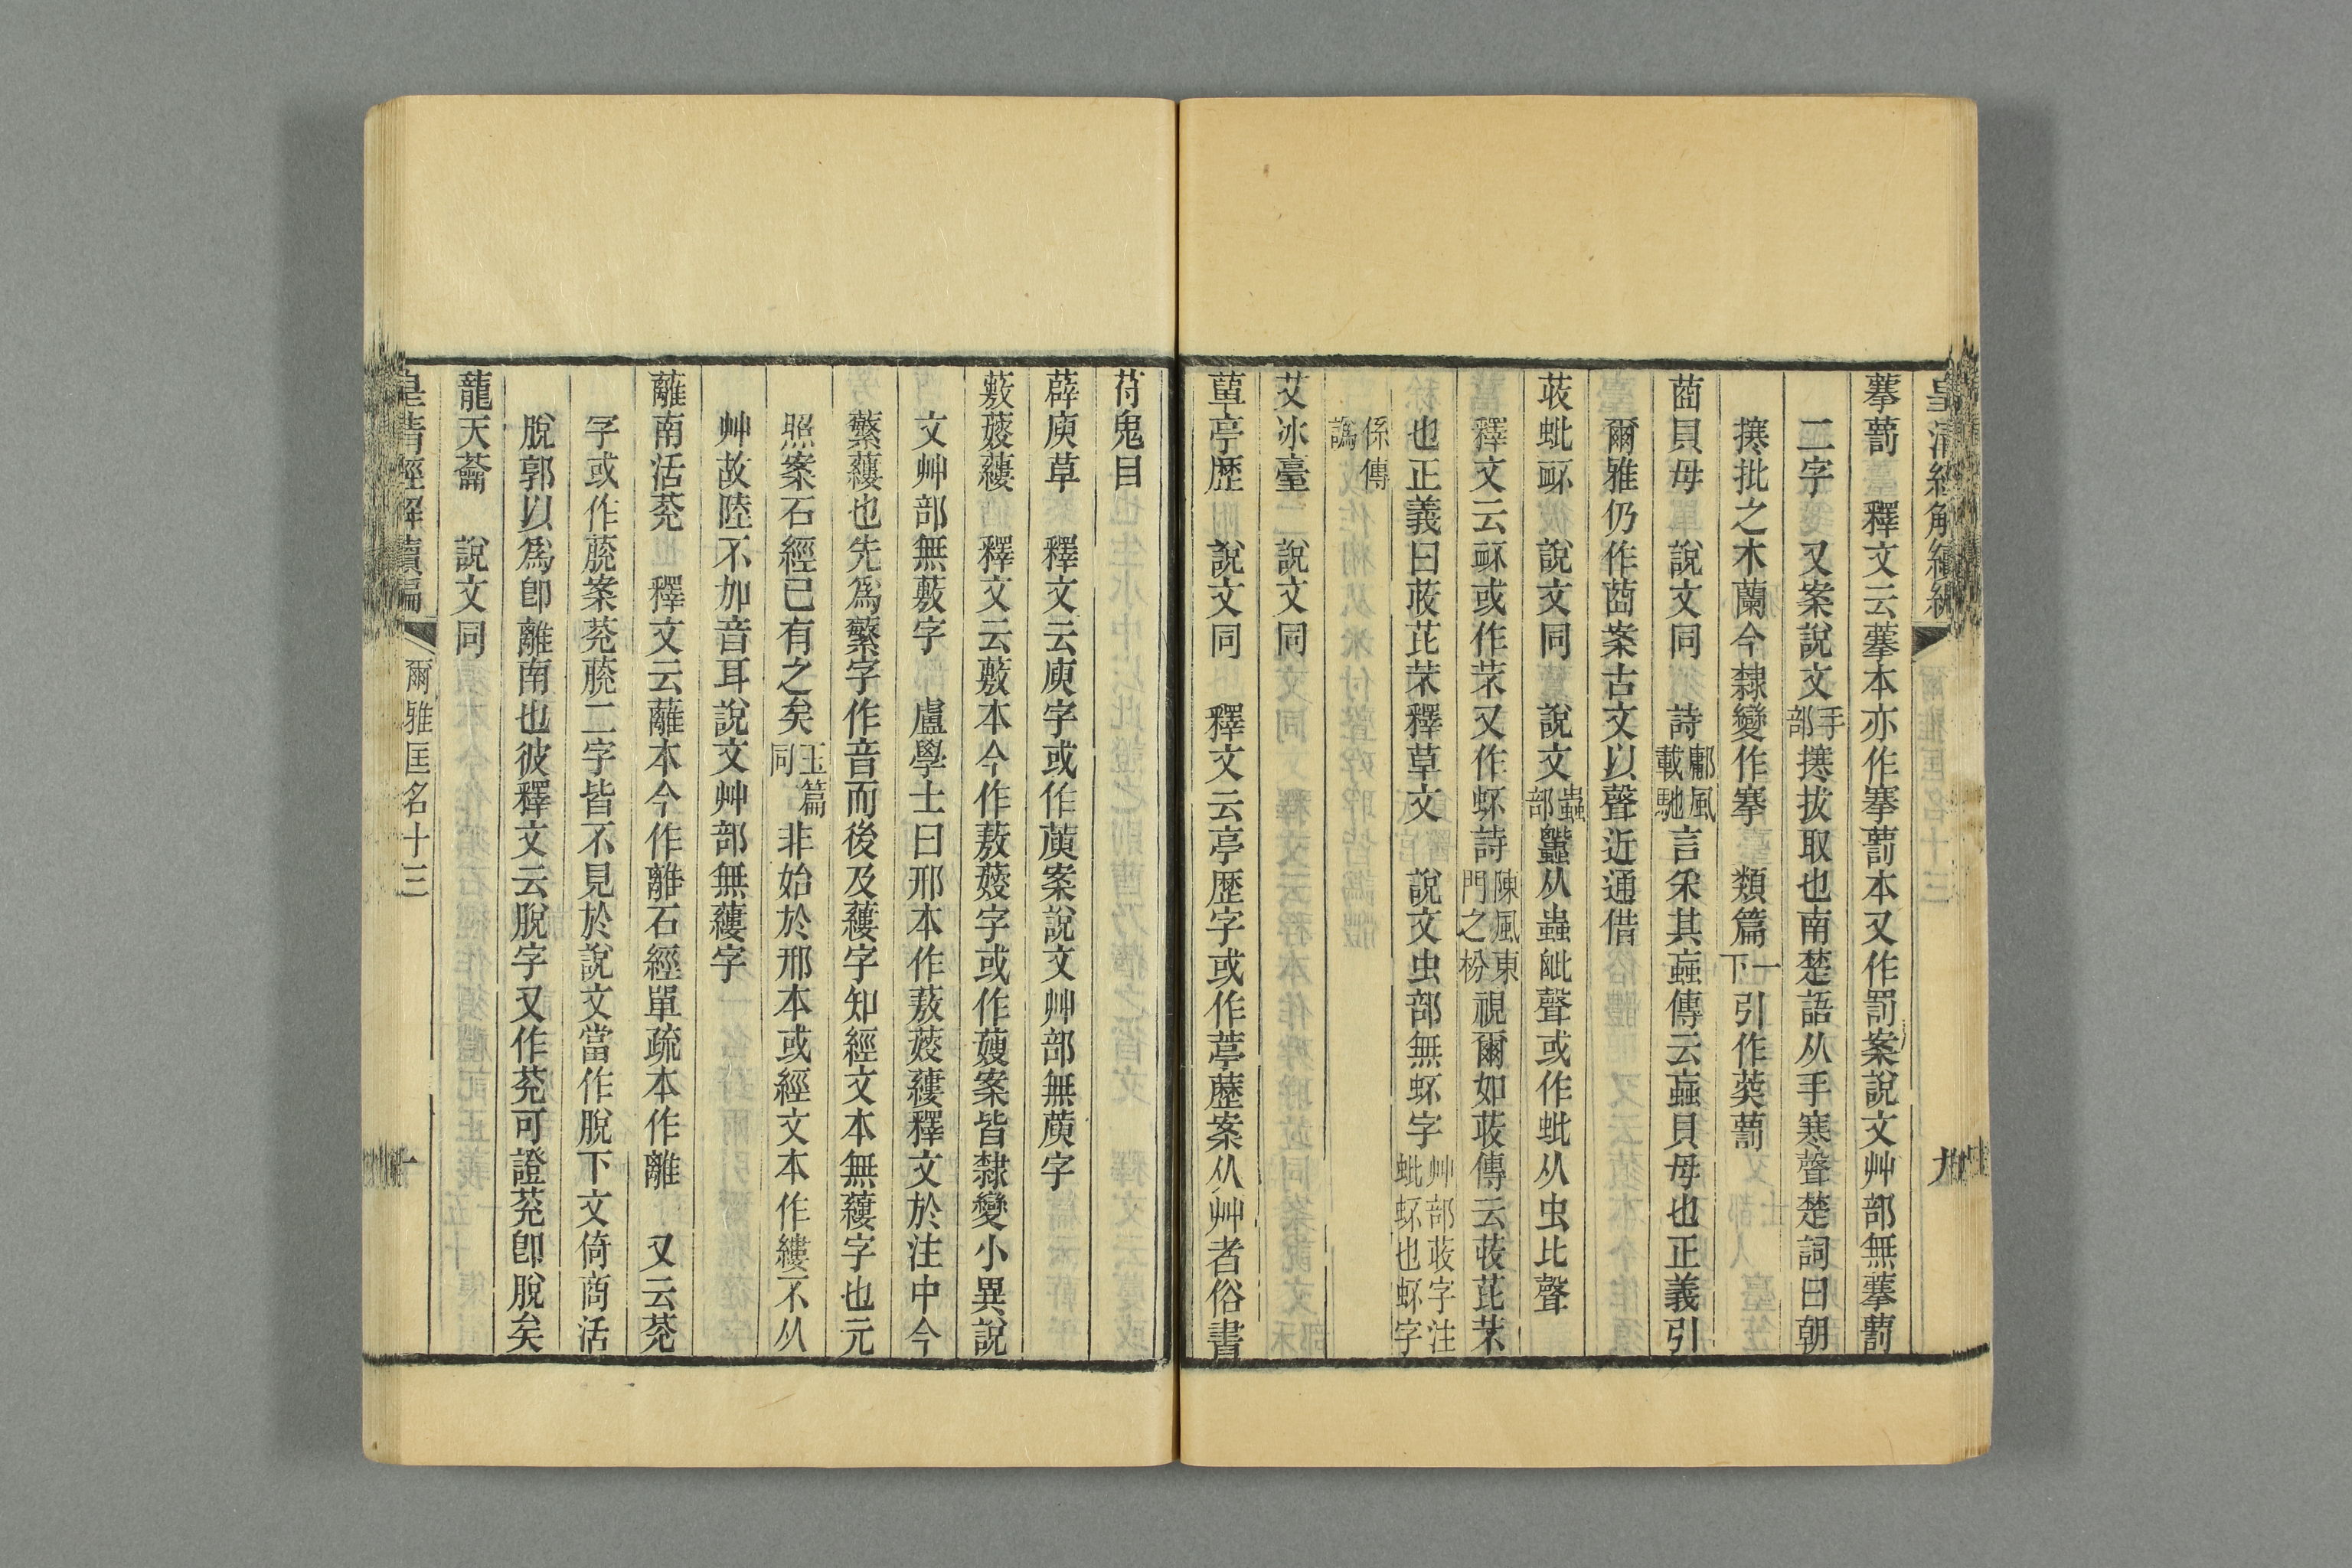 皇清經解續編 爾雅匡名十三 九
搴藅 釋文云搴本亦作搴藅本又作罰案說文艸部無搴藅
二字 又案說文手部攓拔取也南楚語从手寒聲楚詞曰朝
攓批之木蘭今隸變作搴 類篇一下引作葖藅
莔貝母 說文同 詩鄘風載馳言采其蝱傳云蝱貝母也正義引
爾雅仍作莔案古文以聲近通借
荍蚍衃 說文同 說文蟲部蠶从蟲毗聲或作蚍从虫比聲
釋文云衃或作芣又作蚽詩陳風東門之枌視爾如荍傳云荍芘芣
也正義曰荍芘芣釋草文 說文虫部無蚽字艸部荍字注蚍蚽也蚽字
係傳譌
艾冰臺 說文同
葶亭歷 說文同 釋文云亭歷字或作葶藶案从艸者俗書
苻鬼目
薜庾草 釋文云庾字或作藇案說文艸部無藇字
蔜䕅藧 釋文云蔜本今作蔜䕅字或作䕅案皆隸變小異說
文艸部無蔜字 盧學士曰邢本作蔜䕅蔞釋文於注中今
蘩蔞也先爲繁字作音而後及蔞字知經文本無蔞字也元
照案石經已有之矣玉篇同非始於邢本或經文本作縷不从
艸故陸不加音耳說文艸部無藧字
蘺南活莌 釋文云蘺本今作離石經單疏本作離 又云莌
字或作䕀案莌䕀二字皆不見於說文當作脫下文倚商活
脫郭以爲卽離南也彼釋文云脫字又作莌可證莌卽脫矣
蘢天蘥 說文同
皇清經解續編 爾雅匡名十三 十